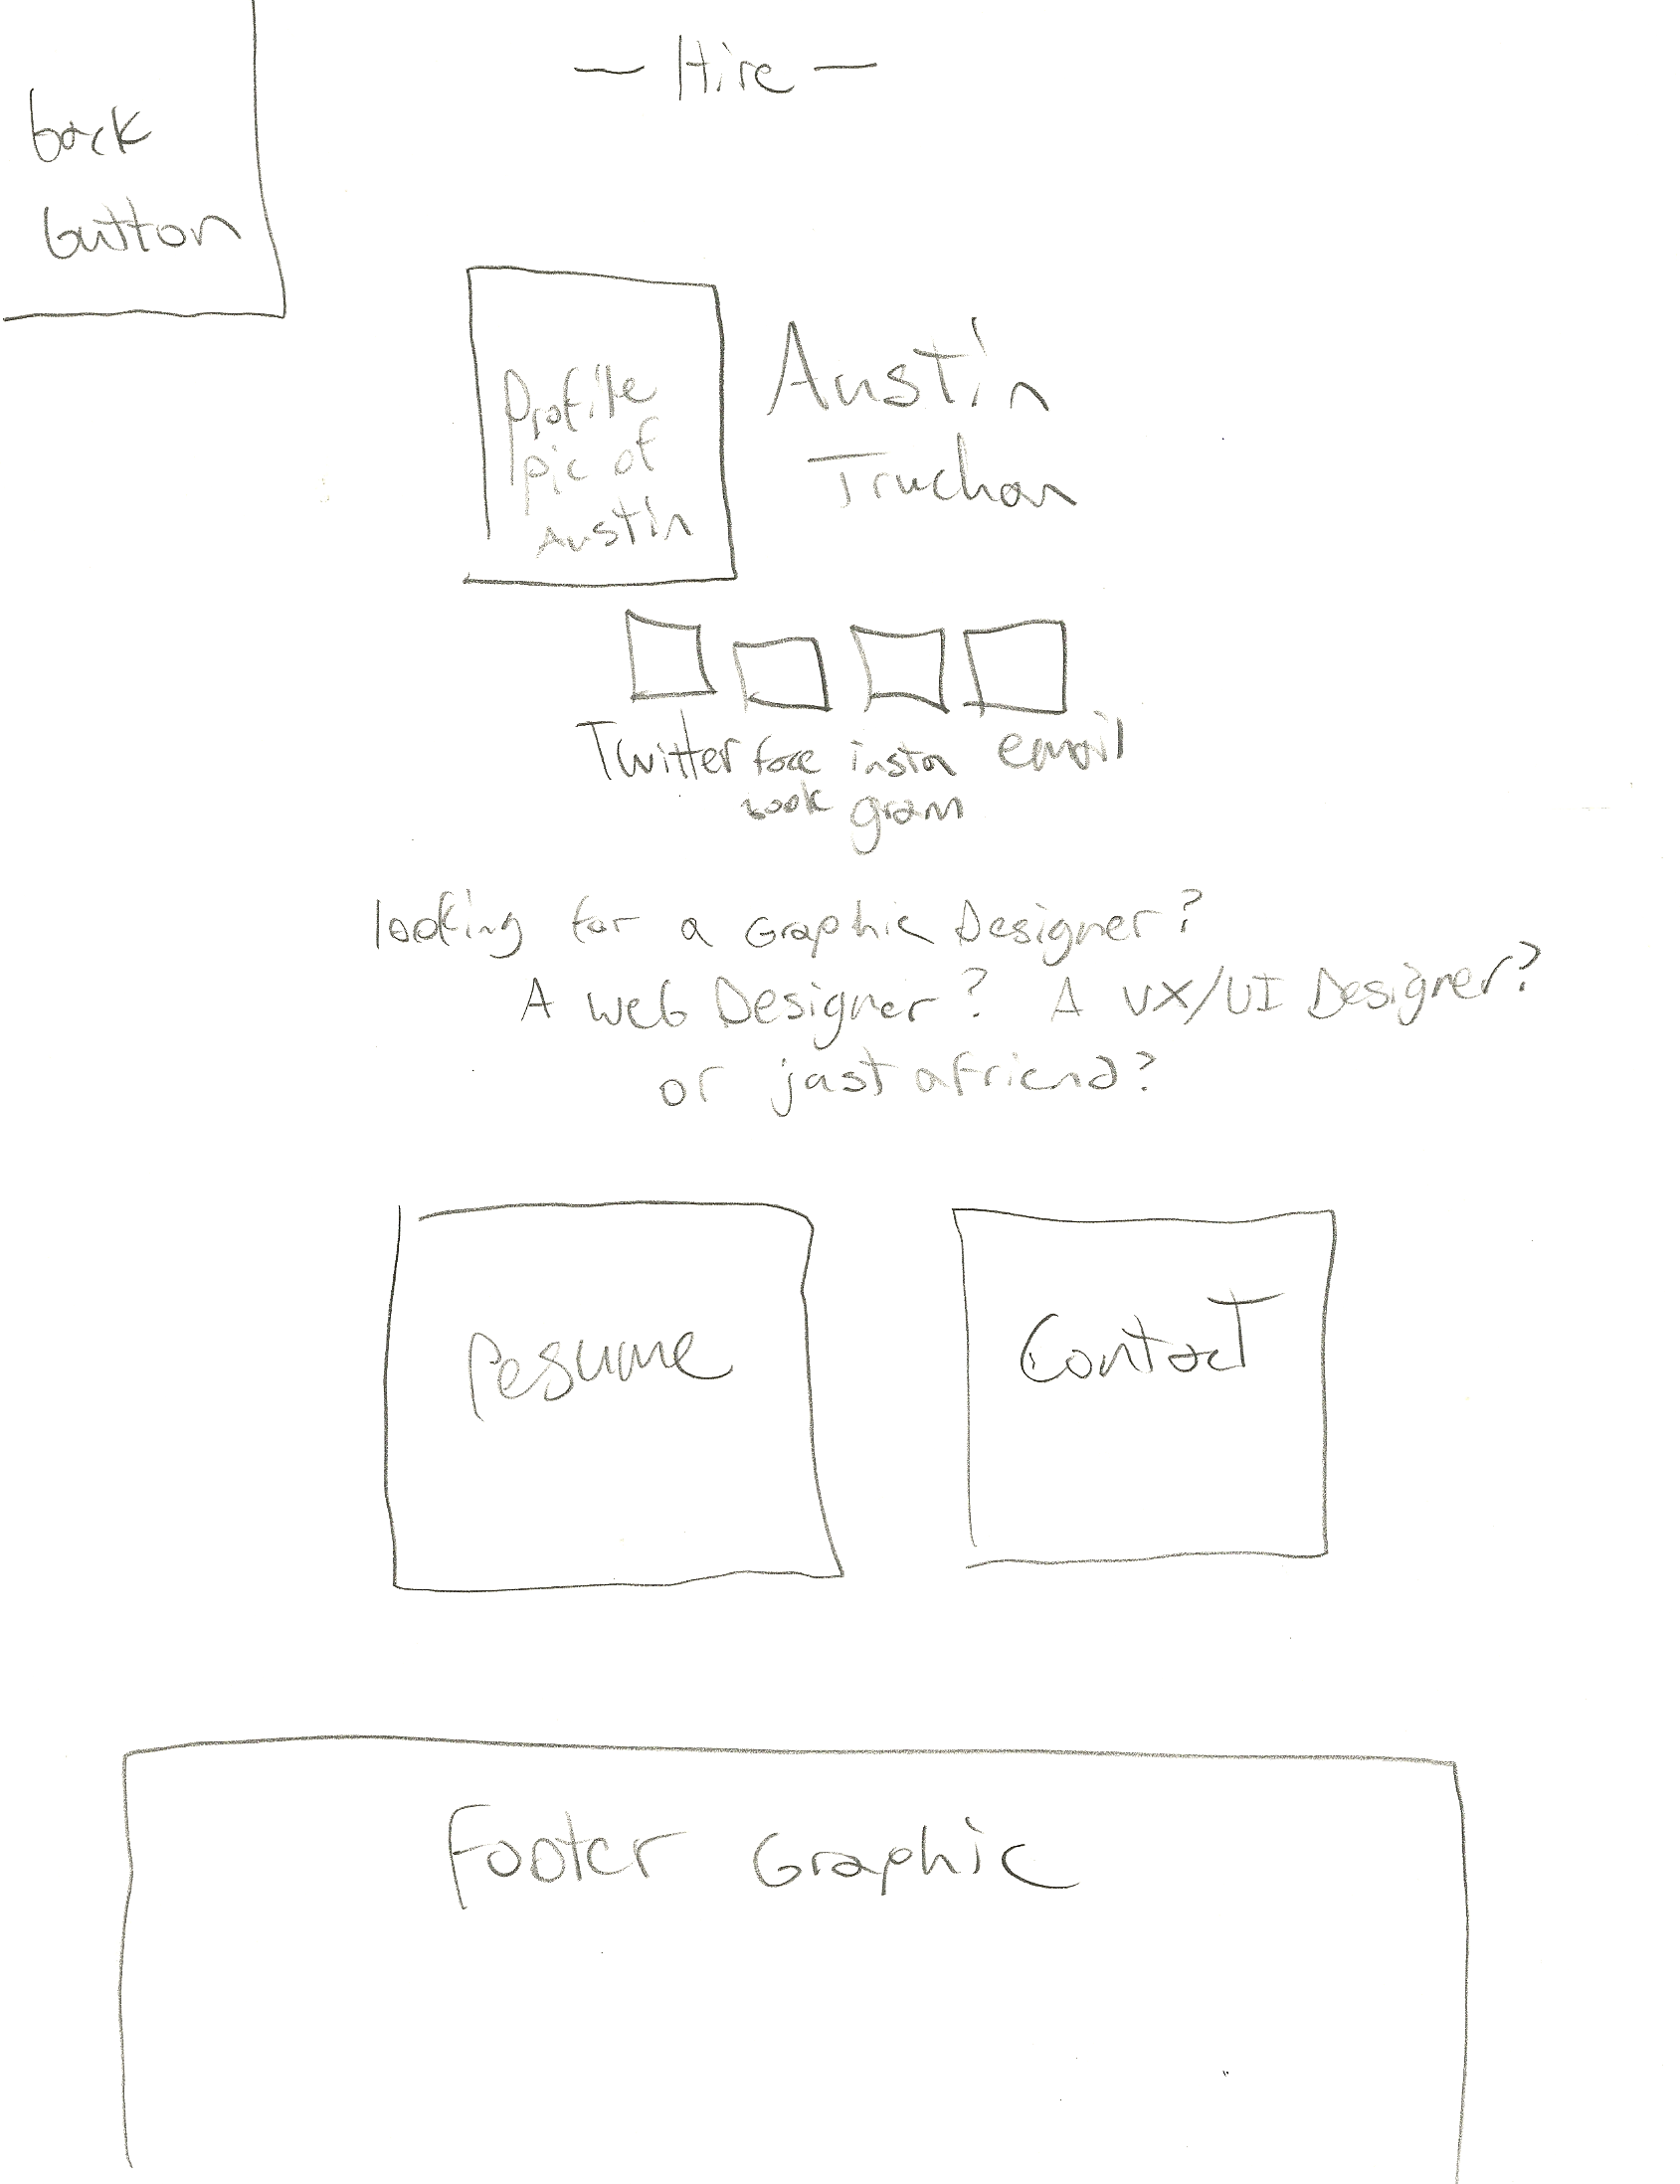 — Hire —
back
button
Profile
pic of
Austin
Austin
Truchan
Twitter face insta email
book gram
looking for a Graphic Designer?
A web Designer? A UX/UI Designer?
or just a friend?
Resume
Contact
Footer Graphic